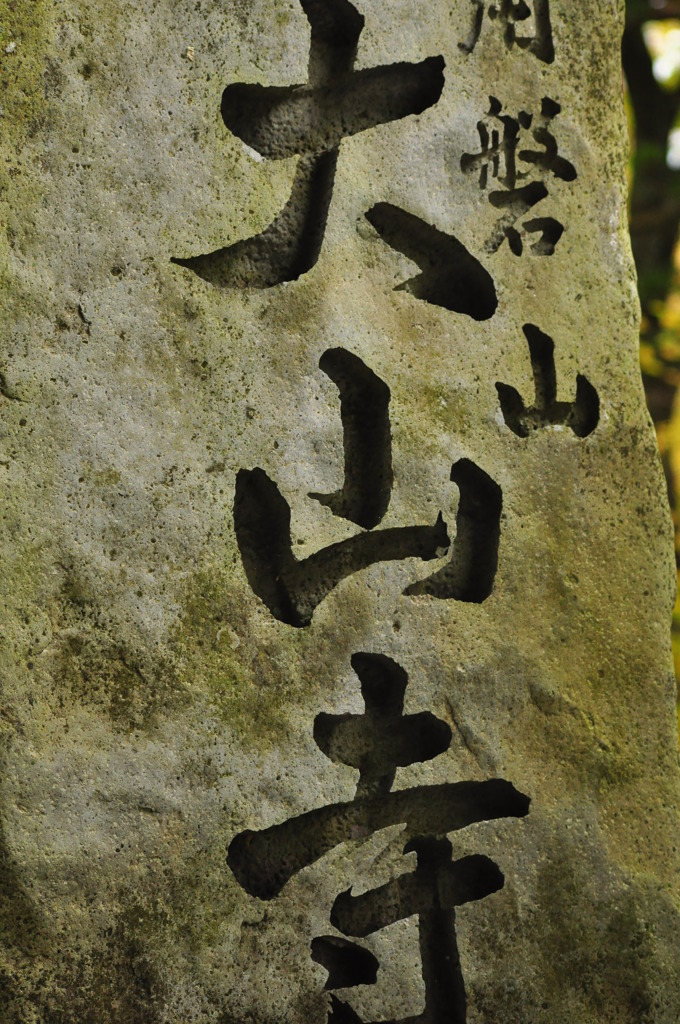 角磐山
大山寺